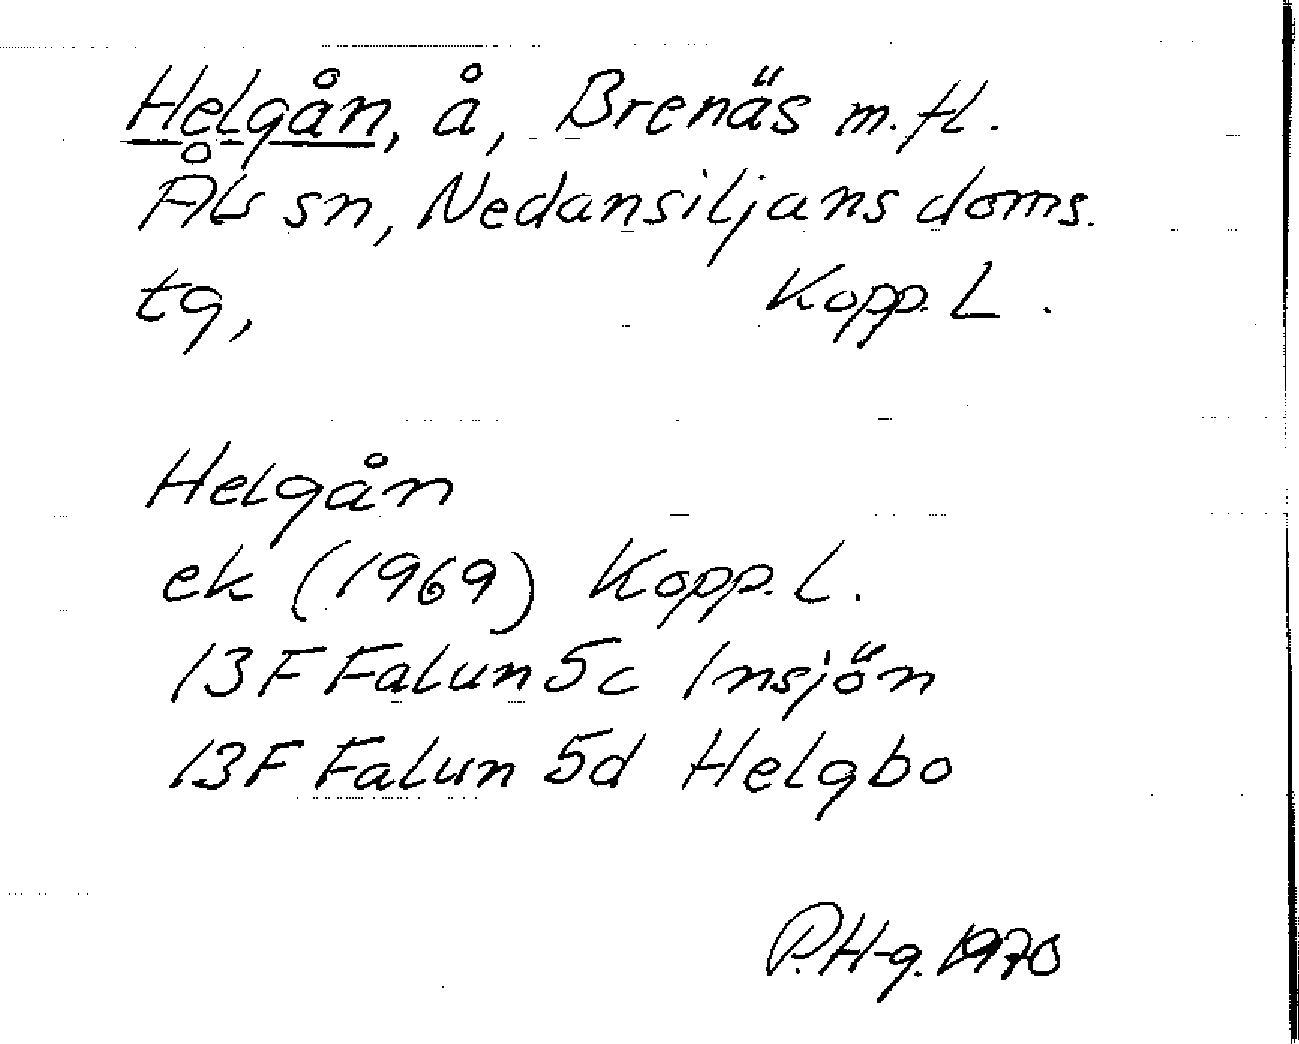 Helgån, å, Brenäs m.fl.
Åls sn, Nedansiljans doms.
tg, Kopp. L.
Helgån
ek (1969) Kopp. L.
13F Falun 5c Insjön
13F Falun 5d Helgbo
P.H-g. 1970